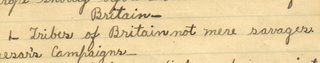 Britain—
L Tribes of Britain not mere savages
esar's Campaigns—